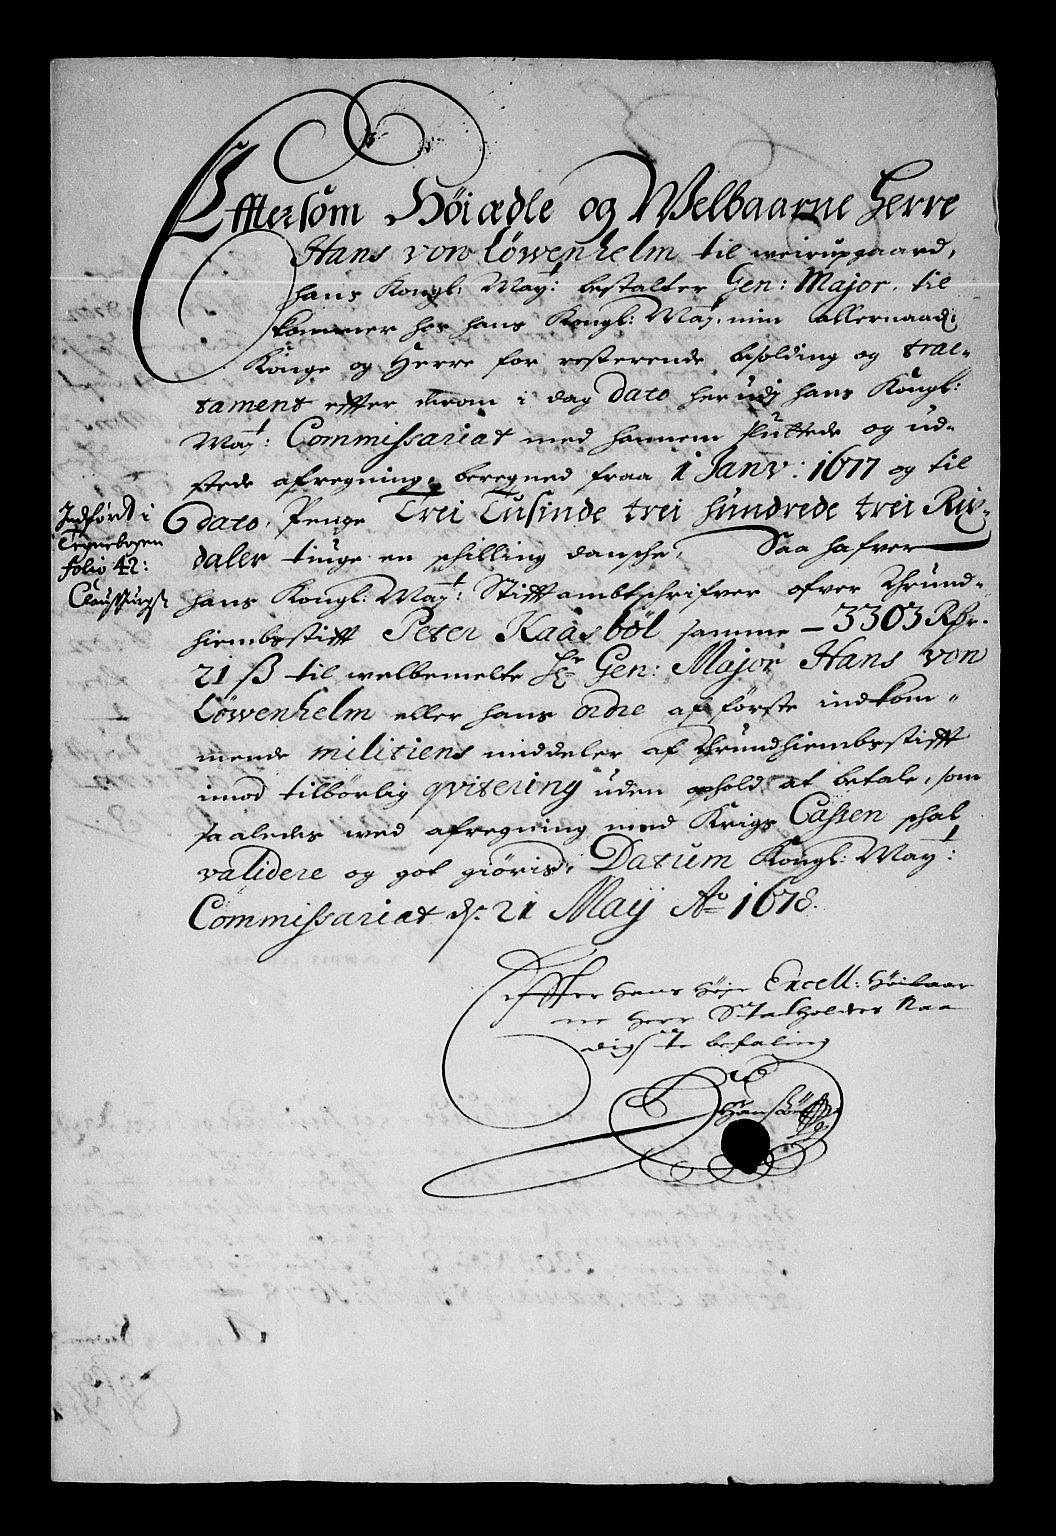 Efftersom Höiædle og Welbaarne Herre
Hans von Löwenhelm til weirupgaard,
hans Kongl: May:t bestalter Gen: Major, til
kommer hos hans Kongl: May:t min allernaad:
Konge og Herre for resterende besolding og trac-
tament effter derom i dag dato her udj hans Kongl:
May:t Commissariat med hannem sluttede og ud-
stede afregning, beregned fraa 1 Janv: 1677 og til
dato, Penge Trei Tusinde trei hundrede trei Rix-
daler tiuge en schilling dansche, Saa hafver
hans Kongl: May:t Stifftambtschrifver ofver Thrund-
hiembsstifft Peter Kaasböl samme – 3303 Rdr.
21 ß til welbemelte Hr Gen: Major Hans von
Löwenhelm eller hans ordre af förste indkom-
mende militiens middeler af Thrundhiembsstifft
imod tilbörlig qvitering uden ophold at betale, som
saaledes wed afregning med Krigs Cassen schal
validere og got giöris, Datum Kongl: May:t
Commissariat d. 21 Maij Ao 1678.
Indfördt i
Tegnebogen
folio 42:
Effter hans höje Excell: Höibaar
ne Herr Statholders Naa
digste befaling